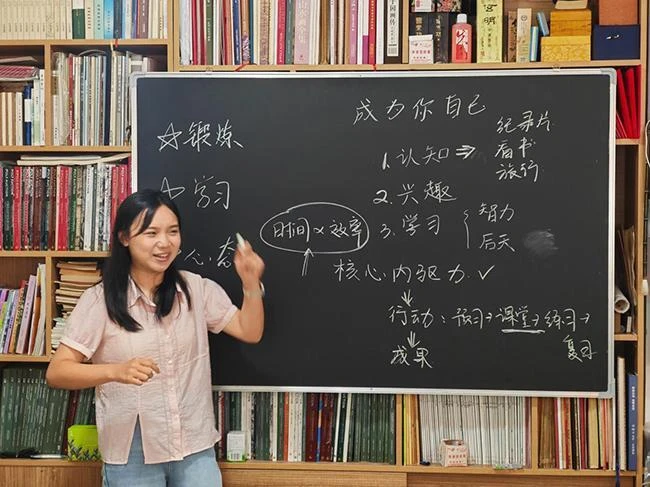 成为你自己
☆锻炼
☆学习
心态
时间×效率
1.认知⇒
纪录片
看书
旅行
2.兴趣
3.学习
智力
后天
核心内驱力✓
行动：预习→课堂→练习→
复习
成果